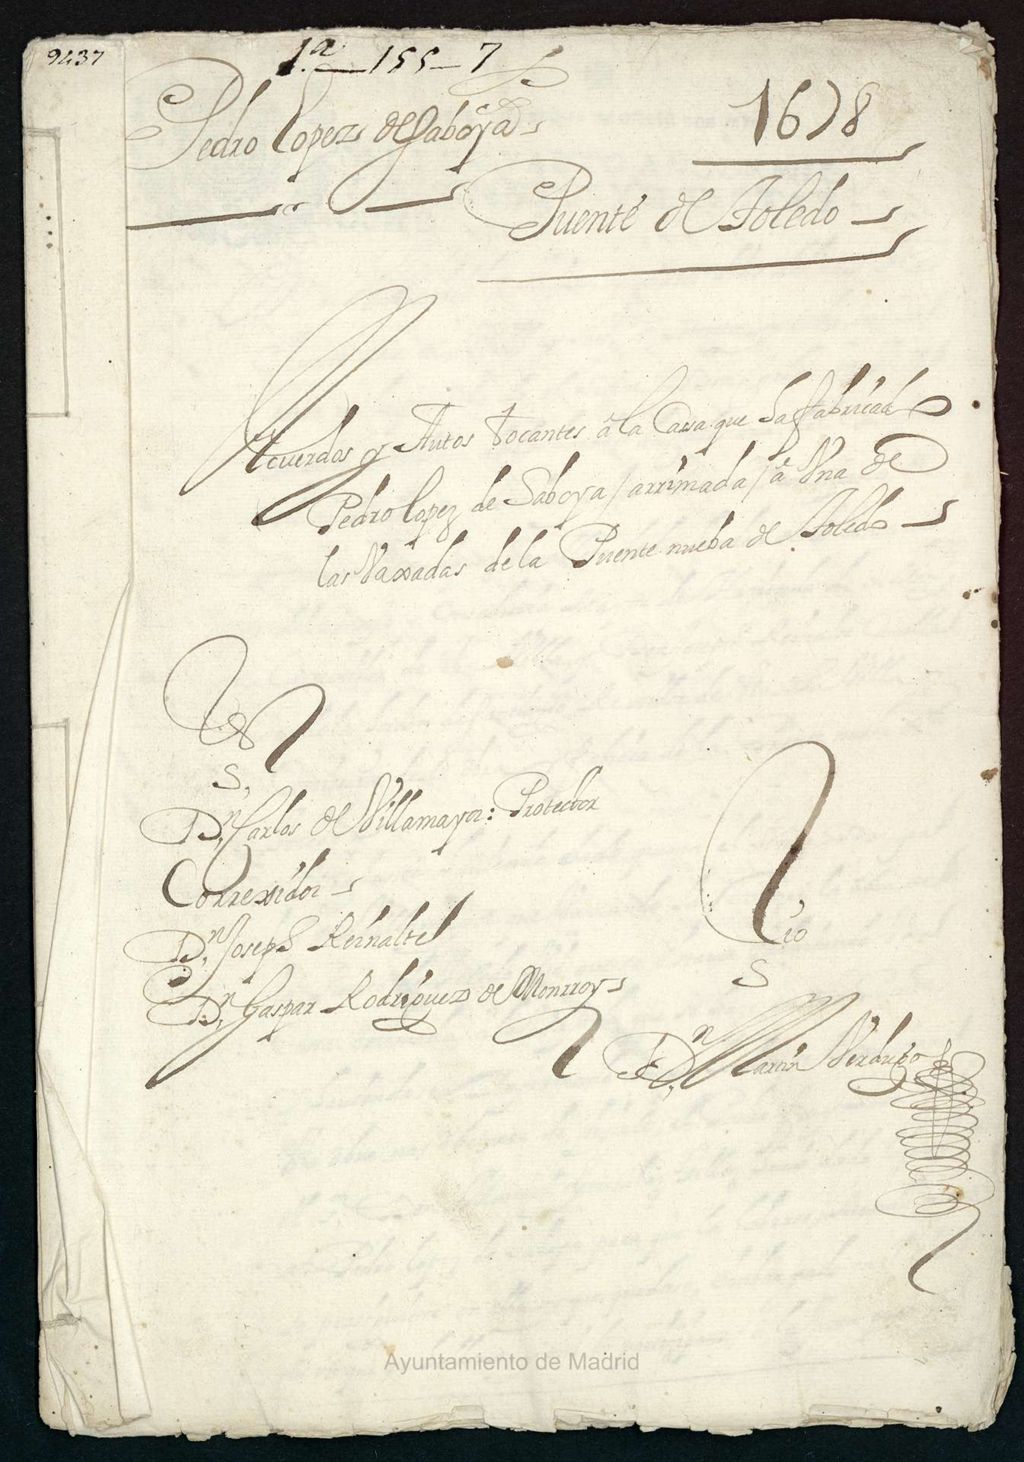 9437
1.ª - 155 - 7
Pedro Lopez de Saboya
1678
Puente de Toledo
Acuerdos y Autos tocantes â la Casa que Ha fabricado
Pedro Lopez de Saboya / arrimada / â Una de
las Vaxadas de la Puente nueba de Toledo
SS.
Dn. Carlos de Villamayor: Protector
Correxidor
Dn. Joseph Reinalte
Dn. Gaspar Rodriguez de Monrroy
io
S
Dn. Martin Verdugo
Ayuntamiento de Madrid